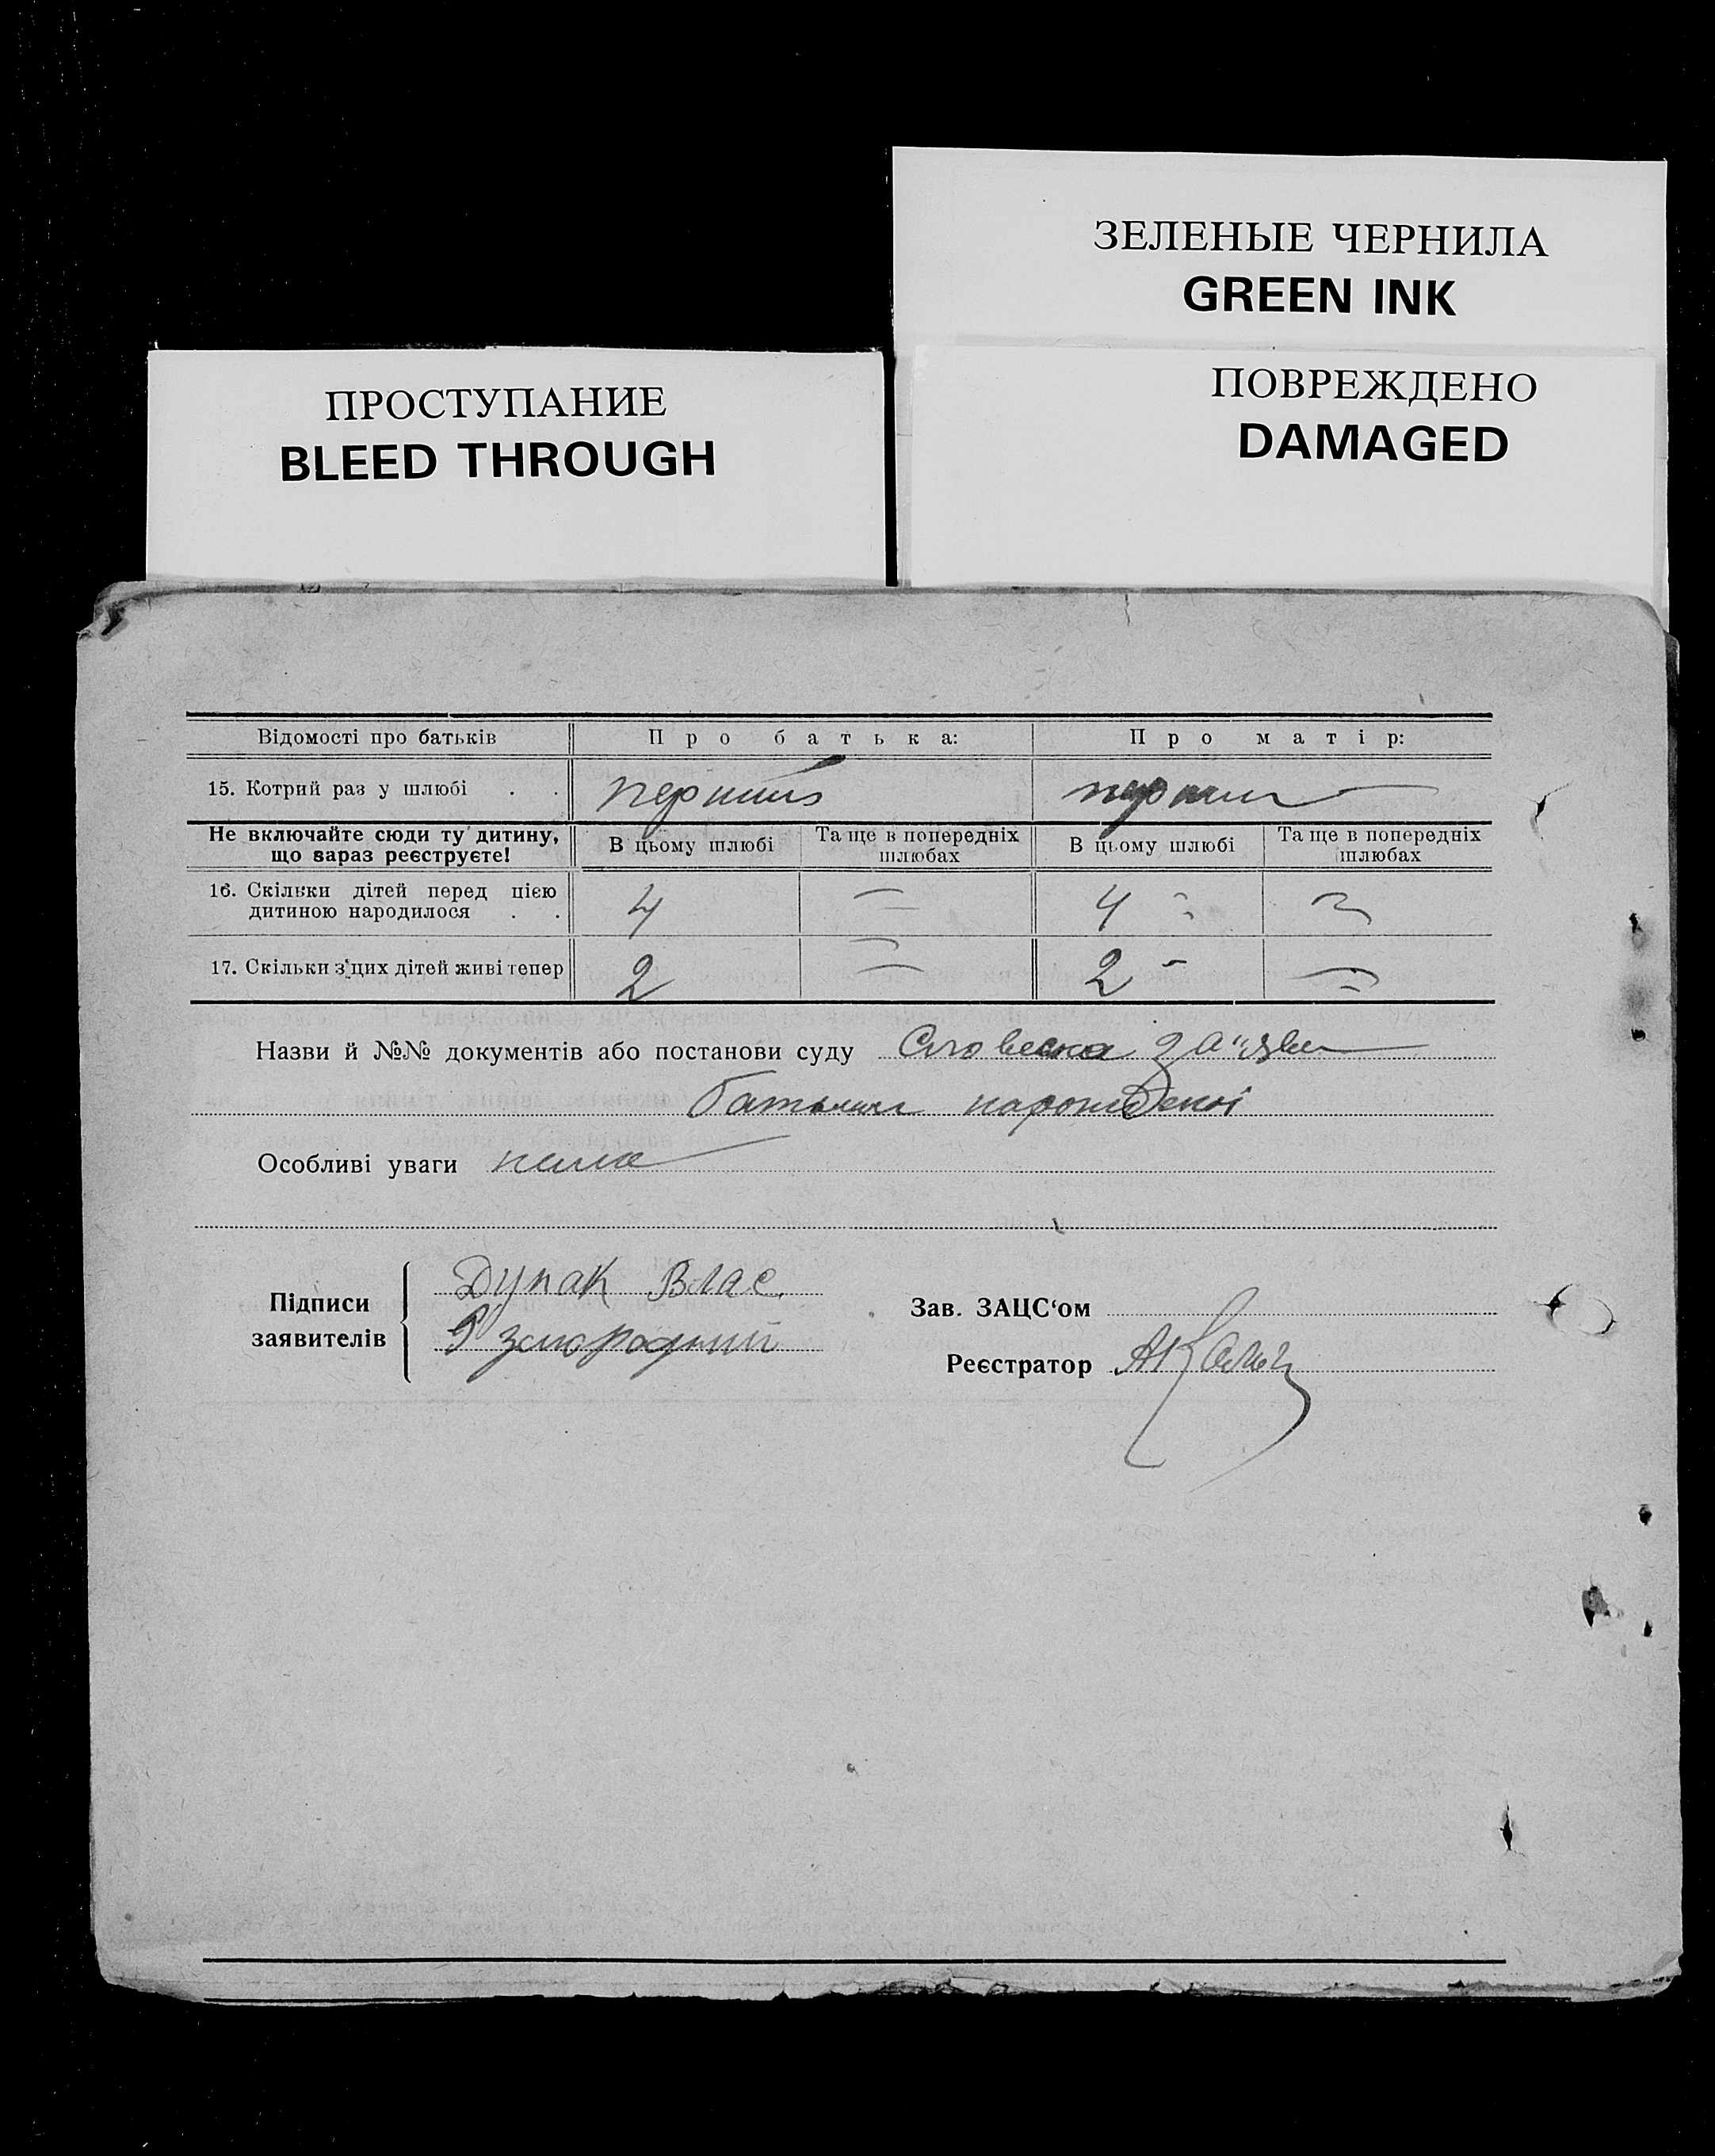 ЗЕЛЕНЫЕ ЧЕРНИЛА
GREEN INK
ПОВРЕЖДЕНО
DAMAGED
ПРОСТУПАНИЕ
BLEED THROUGH
Відомості про батьків Про батька: Про матір:
15. Котрий раз у шлюбі . . перший перший
Не включайте сюди ту дитину, що зараз реєструєте! В цьому шлюбі Та ще в попередніх шлюбах В цьому шлюбі Та ще в попередніх шлюбах
16. Скільки дітей перед цією дитиною народилося . . 4 — 4 —
17. Скільки з'цих дітей живі тепер 2 — 2 —
Назви й №№ документів або постанови суду Словесна заява
батька
Особливі уваги нема
Підписи заявителів Дупак Влас.
Зав. ЗАЦС‘ом
Реєстратор